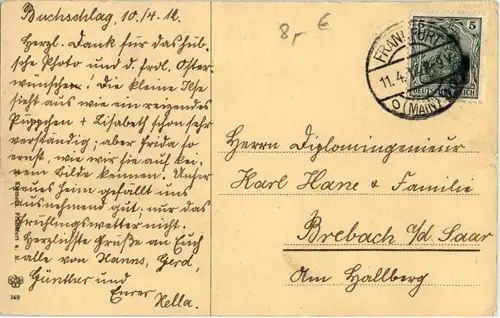 Buchschlag, 10./4. 12.
Herzl. Dank für das hüb-
sche Photo und d. frdl. Oster-
wünschen! Die kleine Ilse
sieht aus wie ein reizendes
Püppchen + Lisabeth schon sehr
verständig; aber Frida so
ernst, wie wir sie auf kei-
nem Bilde kennen. Unser
neues Heim gefällt uns
ausnehmend gut; nur das
Frühlingswetter nicht.
Herzlichste Grüße an Euch
alle von Hanns, Gerd,
Günther und
Eurer Hella.
349
8,- €
FRANKFURT
11.4.12
(MAIN)
5 5
DEUTSCHES REICH
Herrn Diplomingenieur
Karl Hane & Familie
Brebach a/d. Saar
Am Hallberg